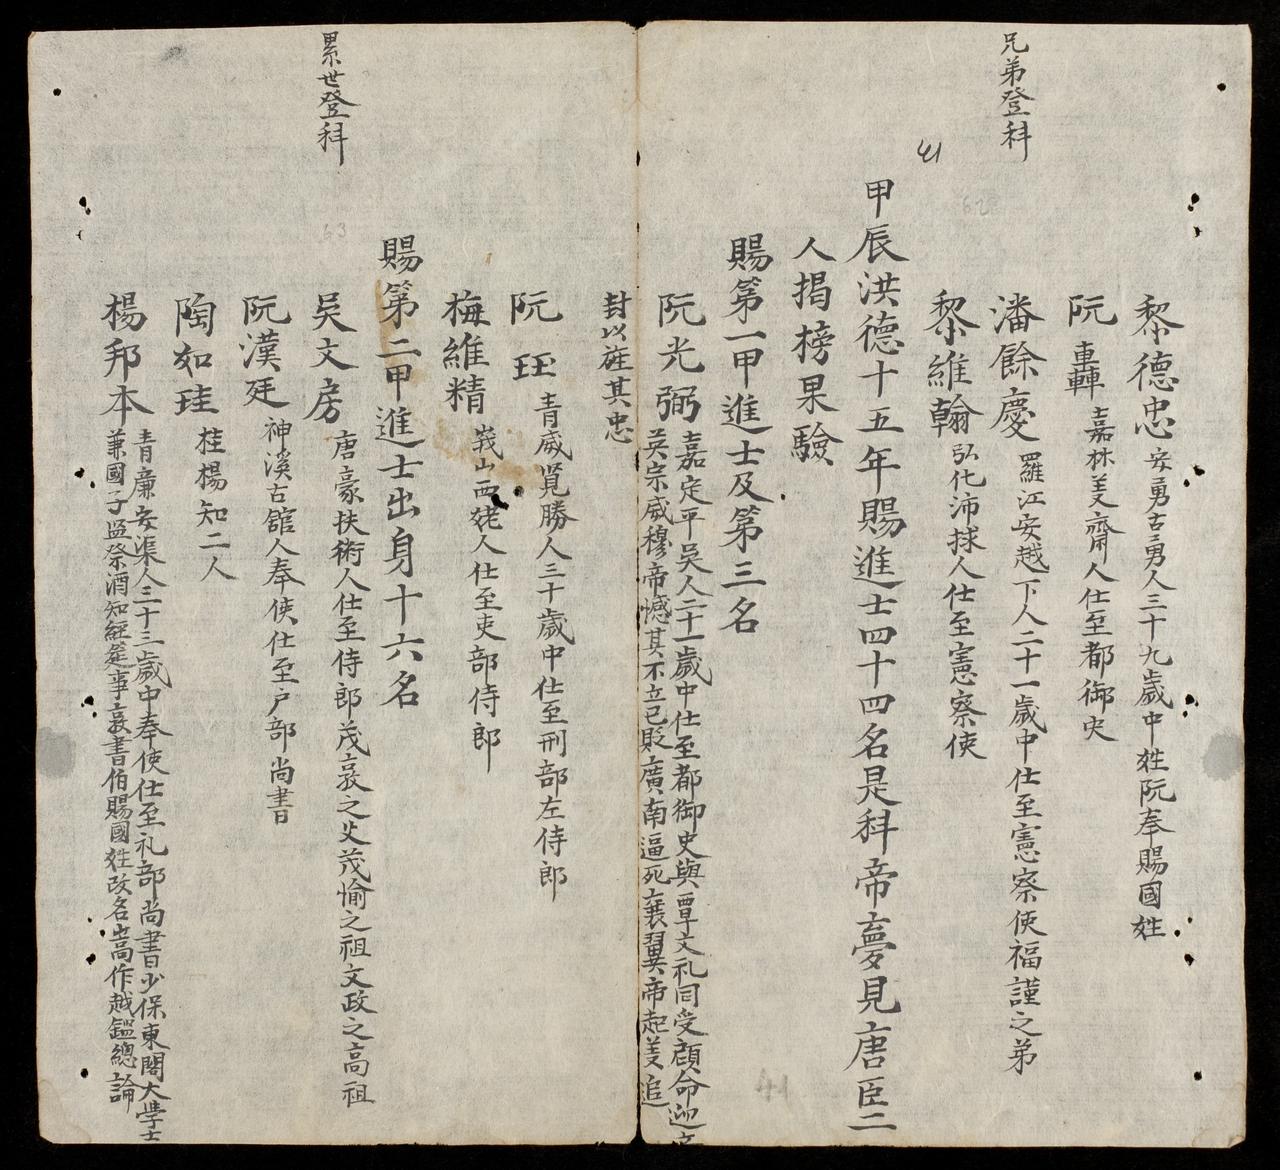 兄弟登科
黎德忠 安勇古勇人三十九歲中姓阮奉賜國姓
阮轟 嘉林芟齋人仕至都御史
潘餘慶 羅江安越下人二十一歲中仕至憲察使福謹之弟
黎維翰 弘化沛捄人仕至憲察使
41
62
甲辰洪德十五年賜進士四十四名是科帝夢見唐臣二
人揭榜果驗
賜第一甲進士及第三名
阮光弼 嘉定平吳人二十一歲中仕至都御史與覃文礼同受顧命迎立
英宗威穆帝憾其不立已貶廣南逼死襄翼帝起義追
封以旌其忠
41
阮珏 青威筧勝人三十歲中仕至刑部左侍郎
梅維精 峩山西姥人仕至吏部侍郎
賜第二甲進士出身十六名
累世登科
63
吳文房 唐豪扶術人仕至侍郎茂敦之父茂愉之祖文政之高祖
阮漢廷 神溪古舘人奉使仕至户部尚書
陶如珪 桂楊知二人
楊邦本 青廉安渠人三十三歲中奉使仕至礼部尚書少保東閣大學士
兼國子監祭酒知經筵事敦書伯賜國姓改名嵩作越鑑總論